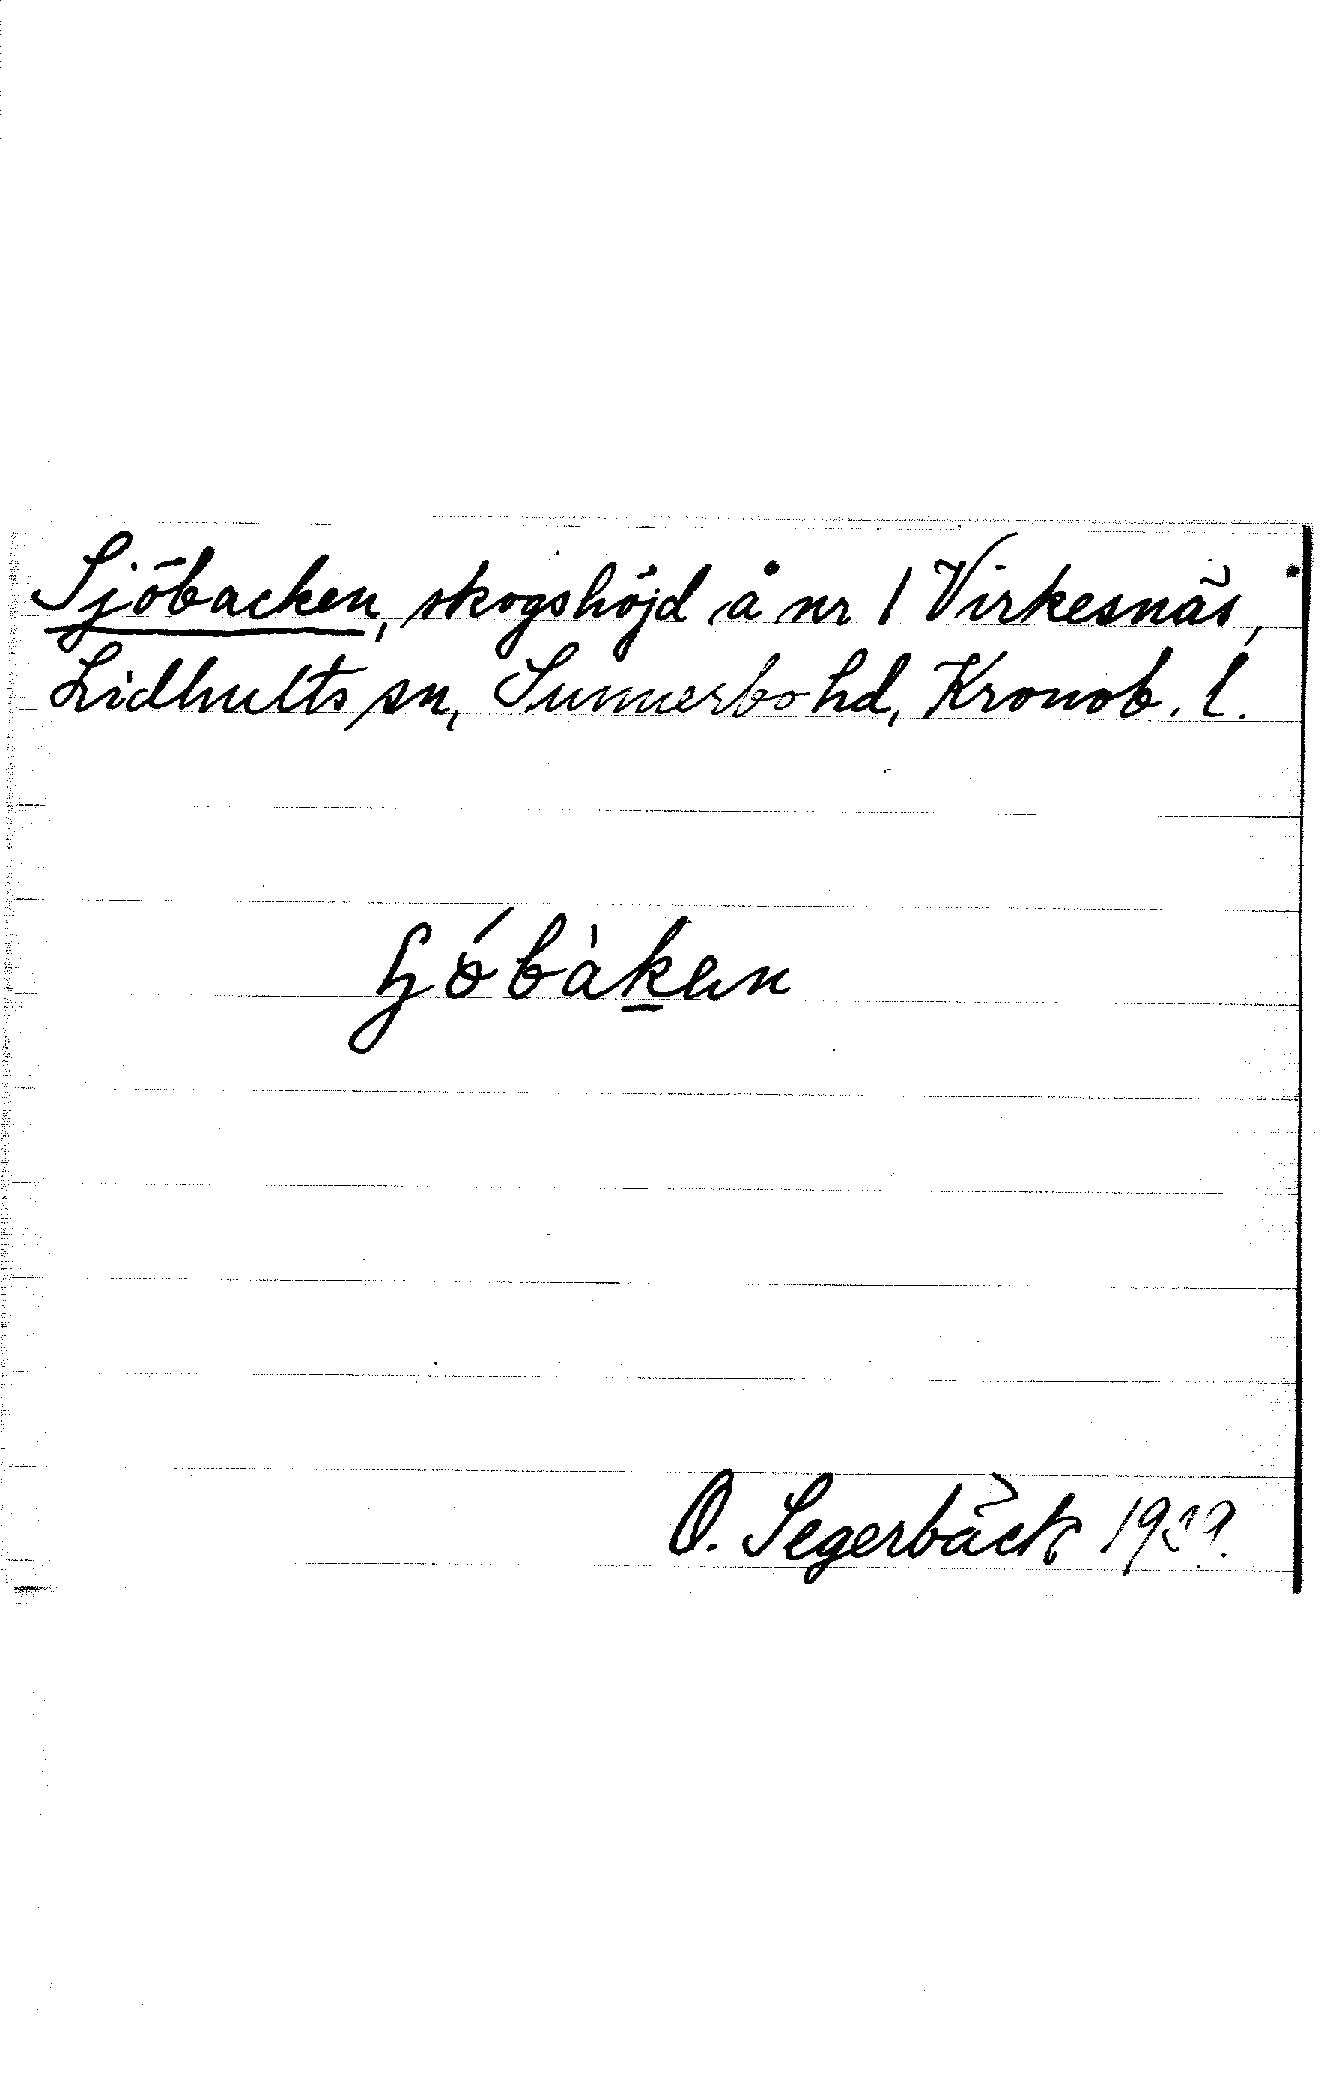 Sjöbacken, skogshöjd å nr 1 Virkesnäs,
Lidhults sn, Sunnerbo hd, Kronob. l.
O. Segerbäck